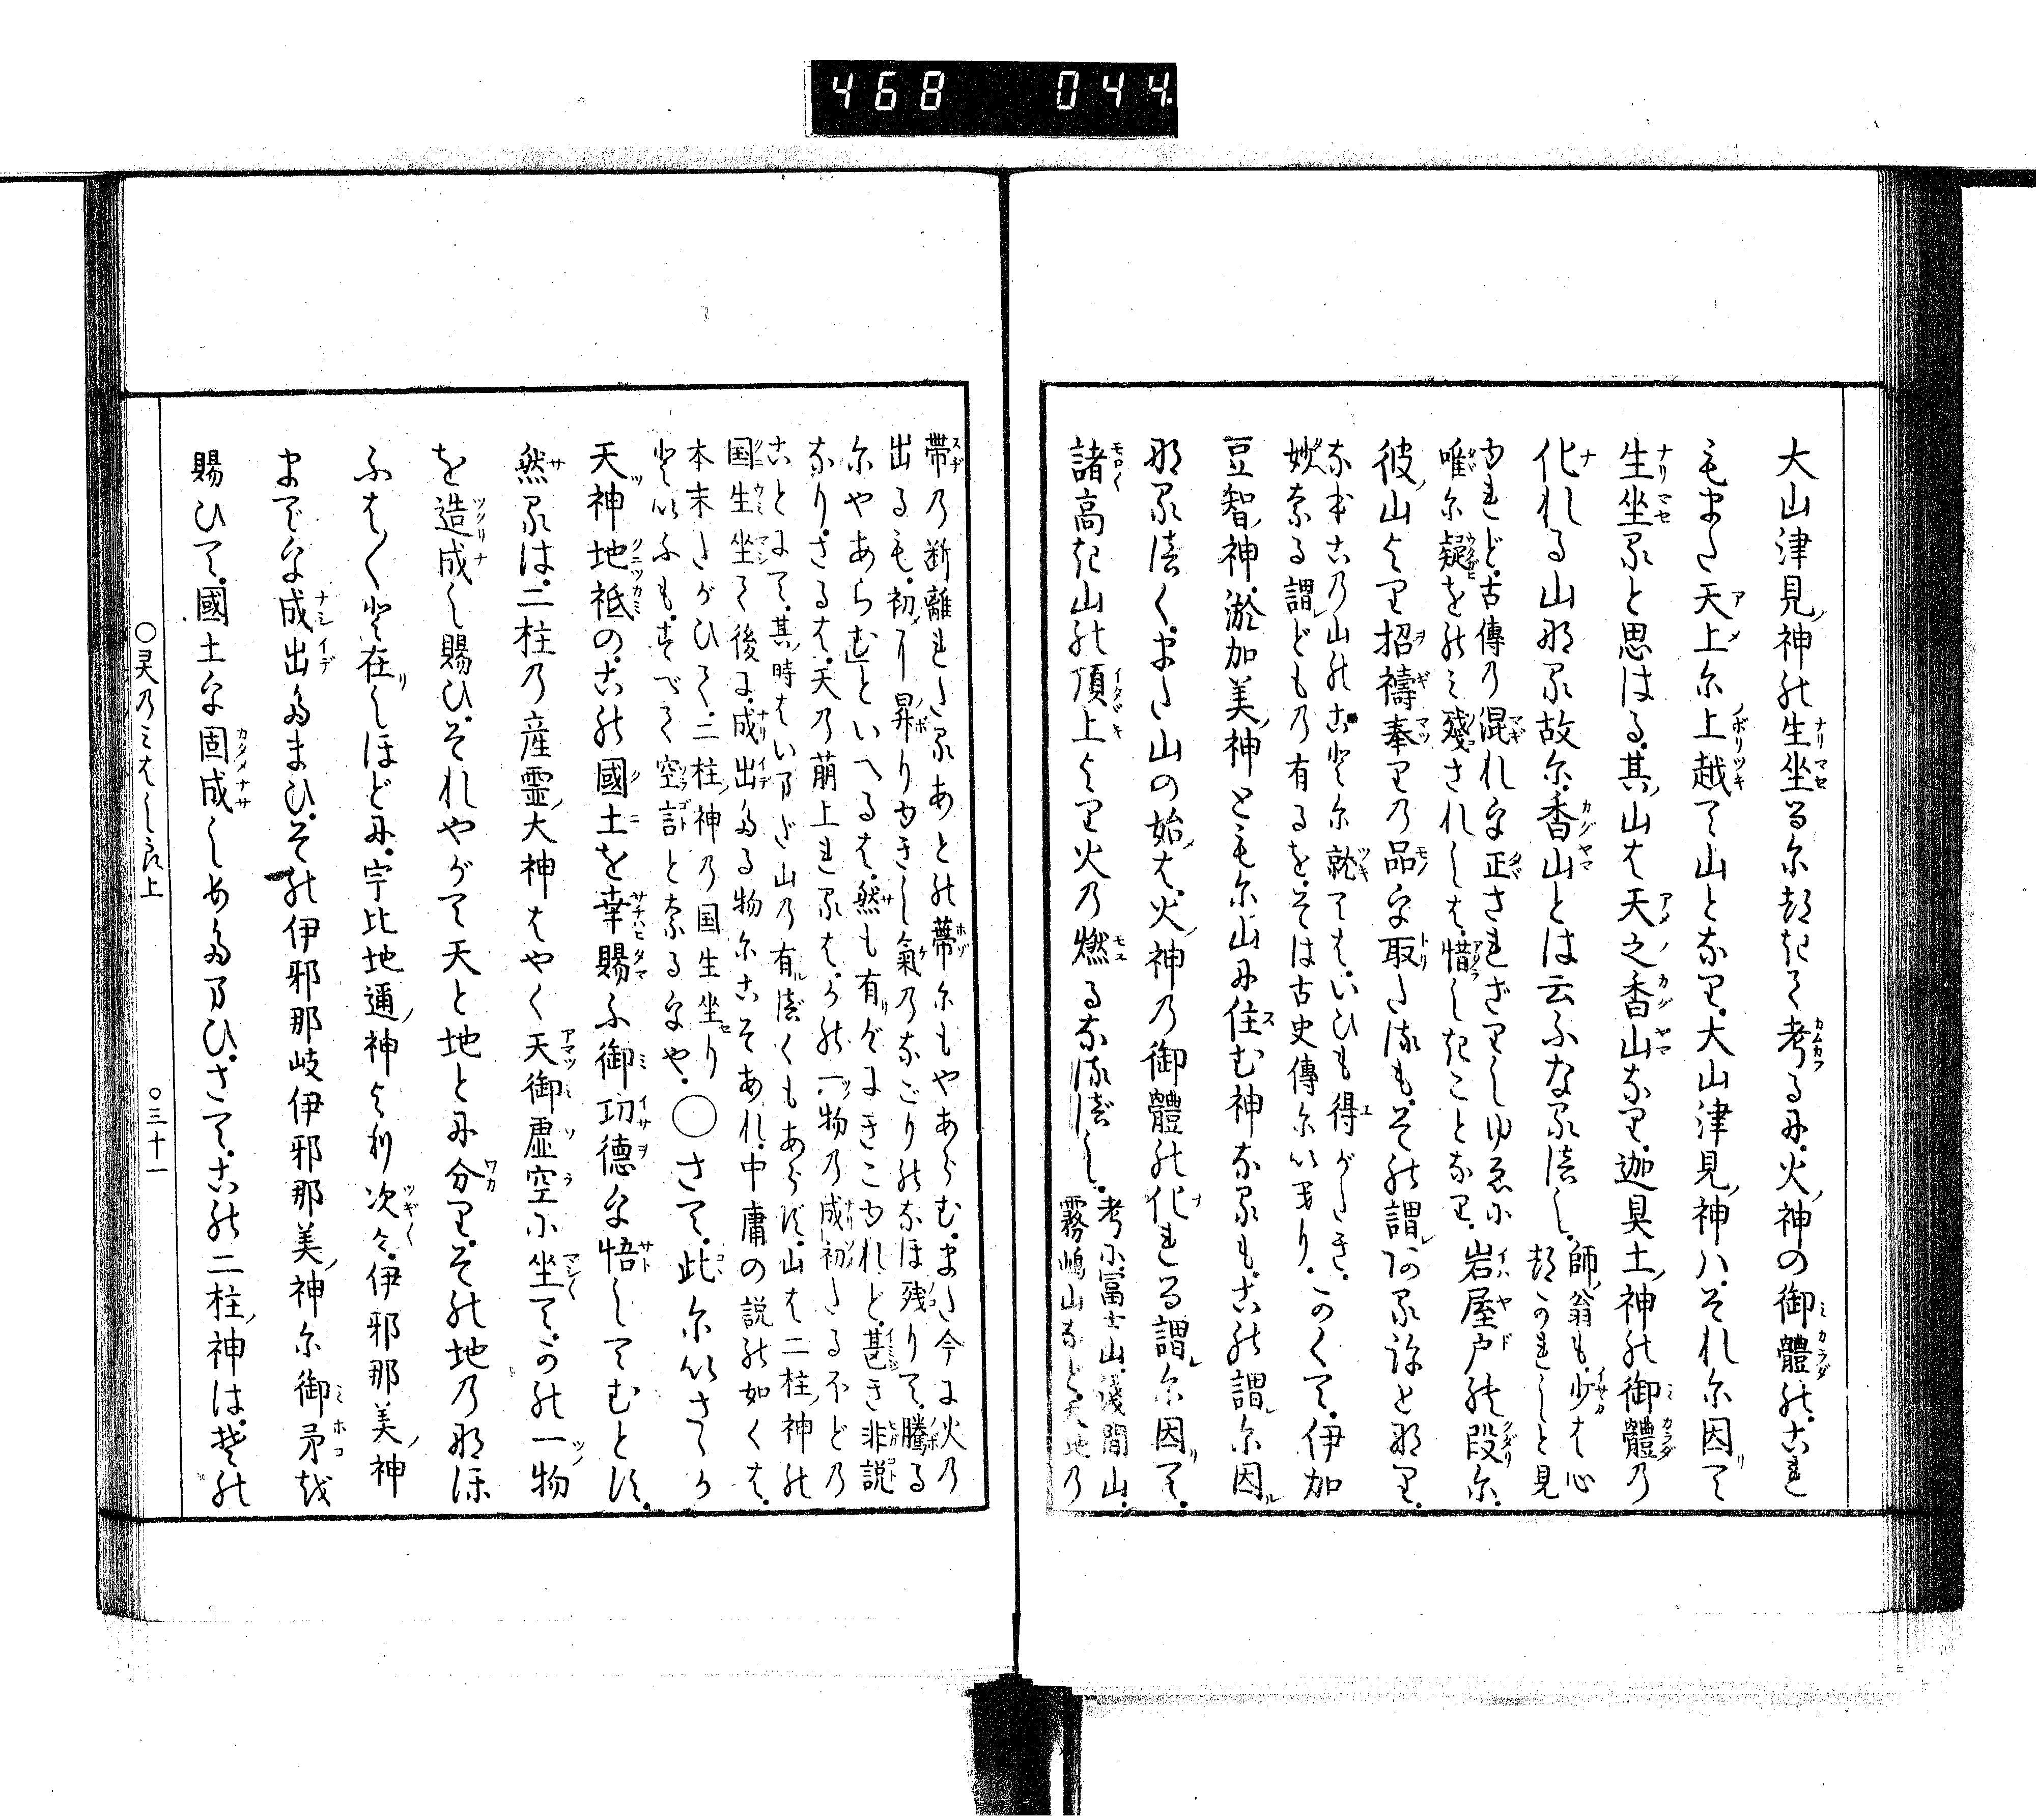 468 044.
大山津見ノ神の生坐るに都きて考るに。火ノ神の御體の。これ
もまた天上に上越て山となり。大山津見ノ神ハ。それに因て
生坐ると思はる。其ノ山は天之香山なり。迦具土ノ神の御體の
化れる山なる故に。香山とは云ふなるべし。師ノ翁も。少は心
都かれしと見
ゆれど。古傳の混れを正されざりしゆゑに
唯に疑をのみ殘されしは。惜しきことなり。岩屋戸の段に。
彼ノ山より招禱奉りの品を取たるも。その謂あるねと那り。
なほこの山のことに就ては。いひも得がたき。
妙なる謂どもの有るを。そは古史傳にいへり。かくて。伊加
豆智ノ神。淤加美ノ神ともに山に住む神なるも。この謂に因
なるべく。また山の始は。火ノ神の御體の化れる謂に因て。
諸高き山の頂上より火の燃るなるべし。考ふ。富士山。淺間山。
霧嶋山など。天地の
帯の断離れたるあとの蔕にもやあらむ。また今に火の
出るも。初に昇りゆきし氣のなごりのなほ残りて。騰る
にやあらむ」といへるは。然も有げにきこゆれど。甚き非説
なり。さるは。天の萠上れるは。かの一ツ物の成初たるほどの
ことにて。其ノ時はいまだ山の有べくもあらず。山は二柱ノ神の
国生坐て後に。成出たる物にこそあれ。中庸の説の如くは。
本末たがひて。二柱ノ神の国生坐り
といふも。すべて空言となるをや。○さて。此にいさゝか
天神地祇の。この國土を幸賜ふ御功德を悟してむとす。
然るは。二柱の産霊ノ大神はやく天御虚空に坐て。かの一物
を造成し賜ひ。それやがて天と地とに分り。その地のなほ
ふはふはと在しほどに。宇比地邇ノ神より次々。伊邪那美ノ神
までを成出たまひ。その伊邪那岐伊邪那美ノ神に御矛を
賜ひて。國土を固成しめたまひ。さて。この二柱ノ神は。その
○灵のみはしら上 ○三十一